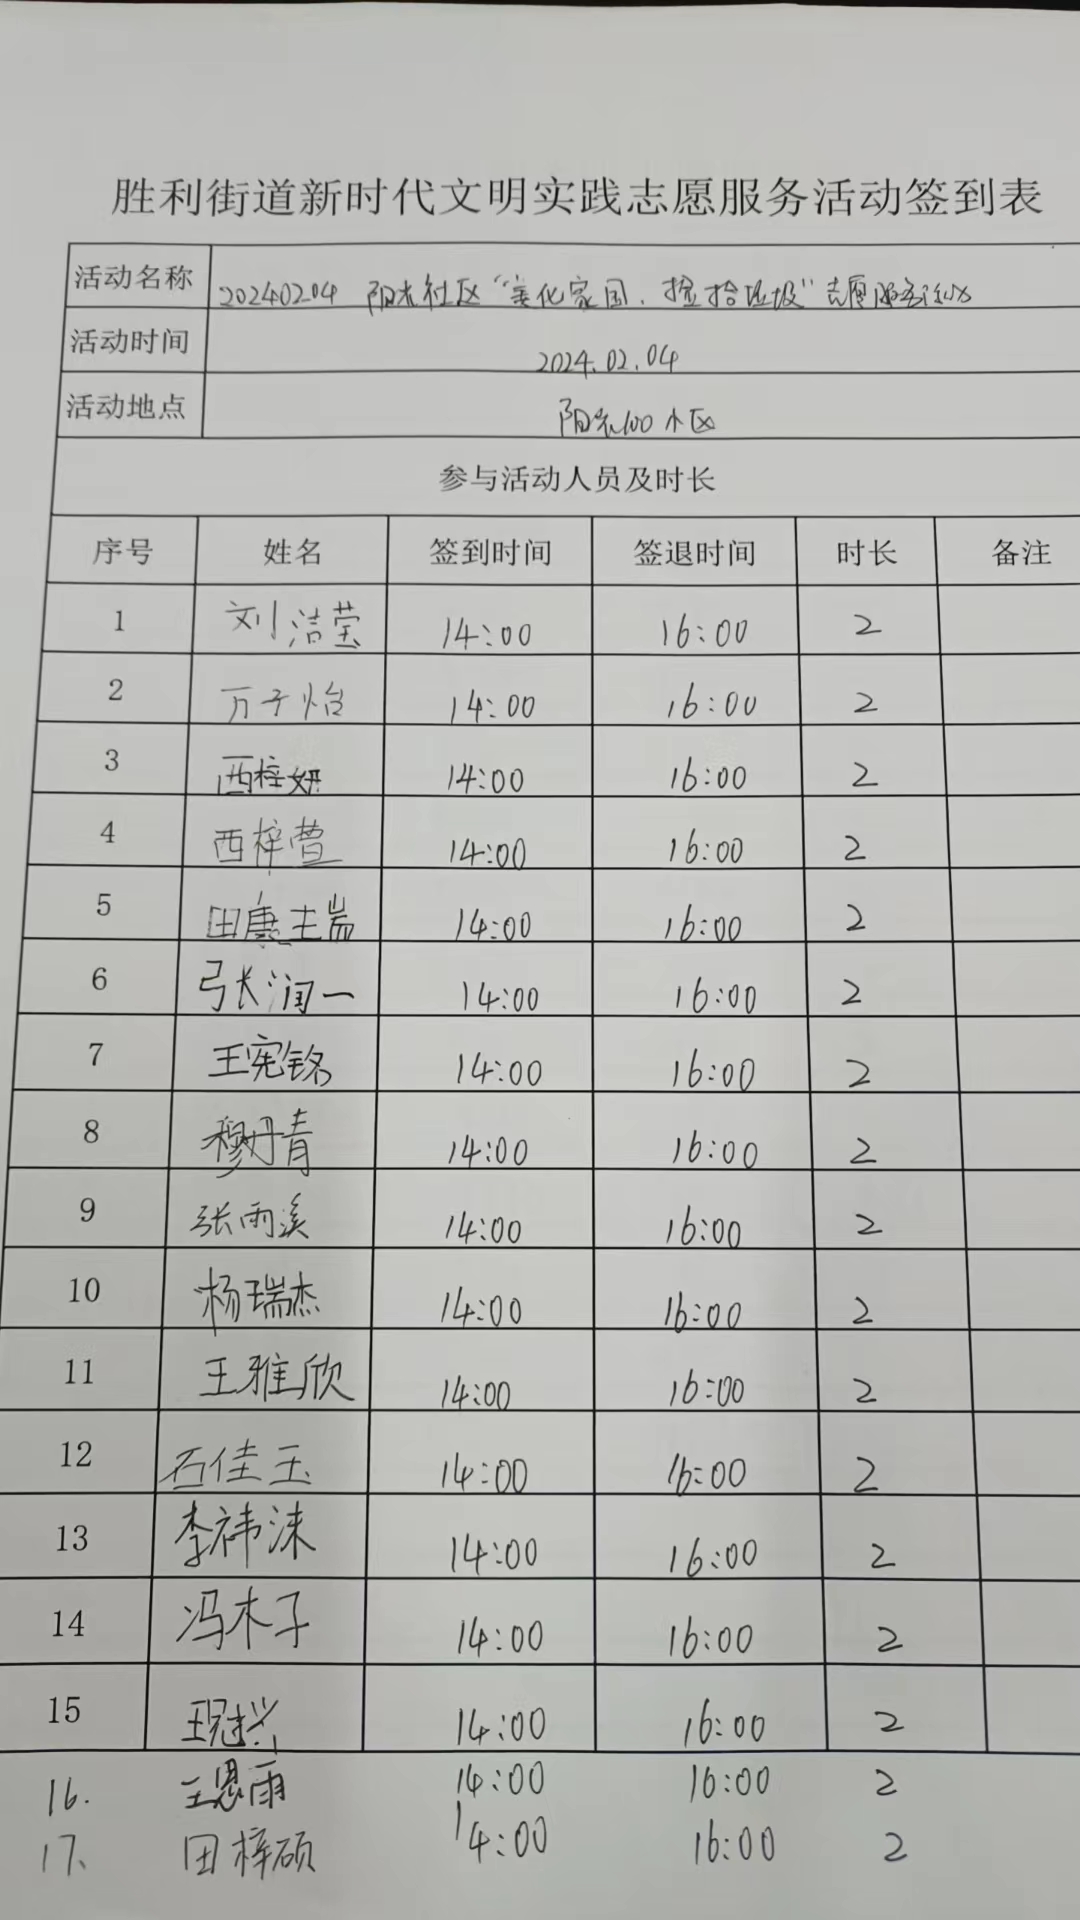 胜利街道新时代文明实践志愿服务活动签到表
活动名称 20240204 阳光社区“美化家园、捡拾垃圾”志愿服务活动
活动时间 2024.02.04
活动地点 阳光100小区
参与活动人员及时长
序号 姓名 签到时间 签退时间 时长 备注
1 刘洁莹 14:00 16:00 2
2 万子怡 14:00 16:00 2
3 西梓妍 14:00 16:00 2
4 西梓萱 14:00 16:00 2
5 田康瑞 14:00 16:00 2
6 张润一 14:00 16:00 2
7 王宪铭 14:00 16:00 2
8 穆丹青 14:00 16:00 2
9 张雨溪 14:00 16:00 2
10 杨瑞杰 14:00 16:00 2
11 王雅欣 14:00 16:00 2
12 石佳玉 14:00 16:00 2
13 李祎沫 14:00 16:00 2
14 冯木子 14:00 16:00 2
15 王冠兴 14:00 16:00 2
16. 王恩雨 14:00 16:00 2
17、 田梓硕 14:00 16:00 2